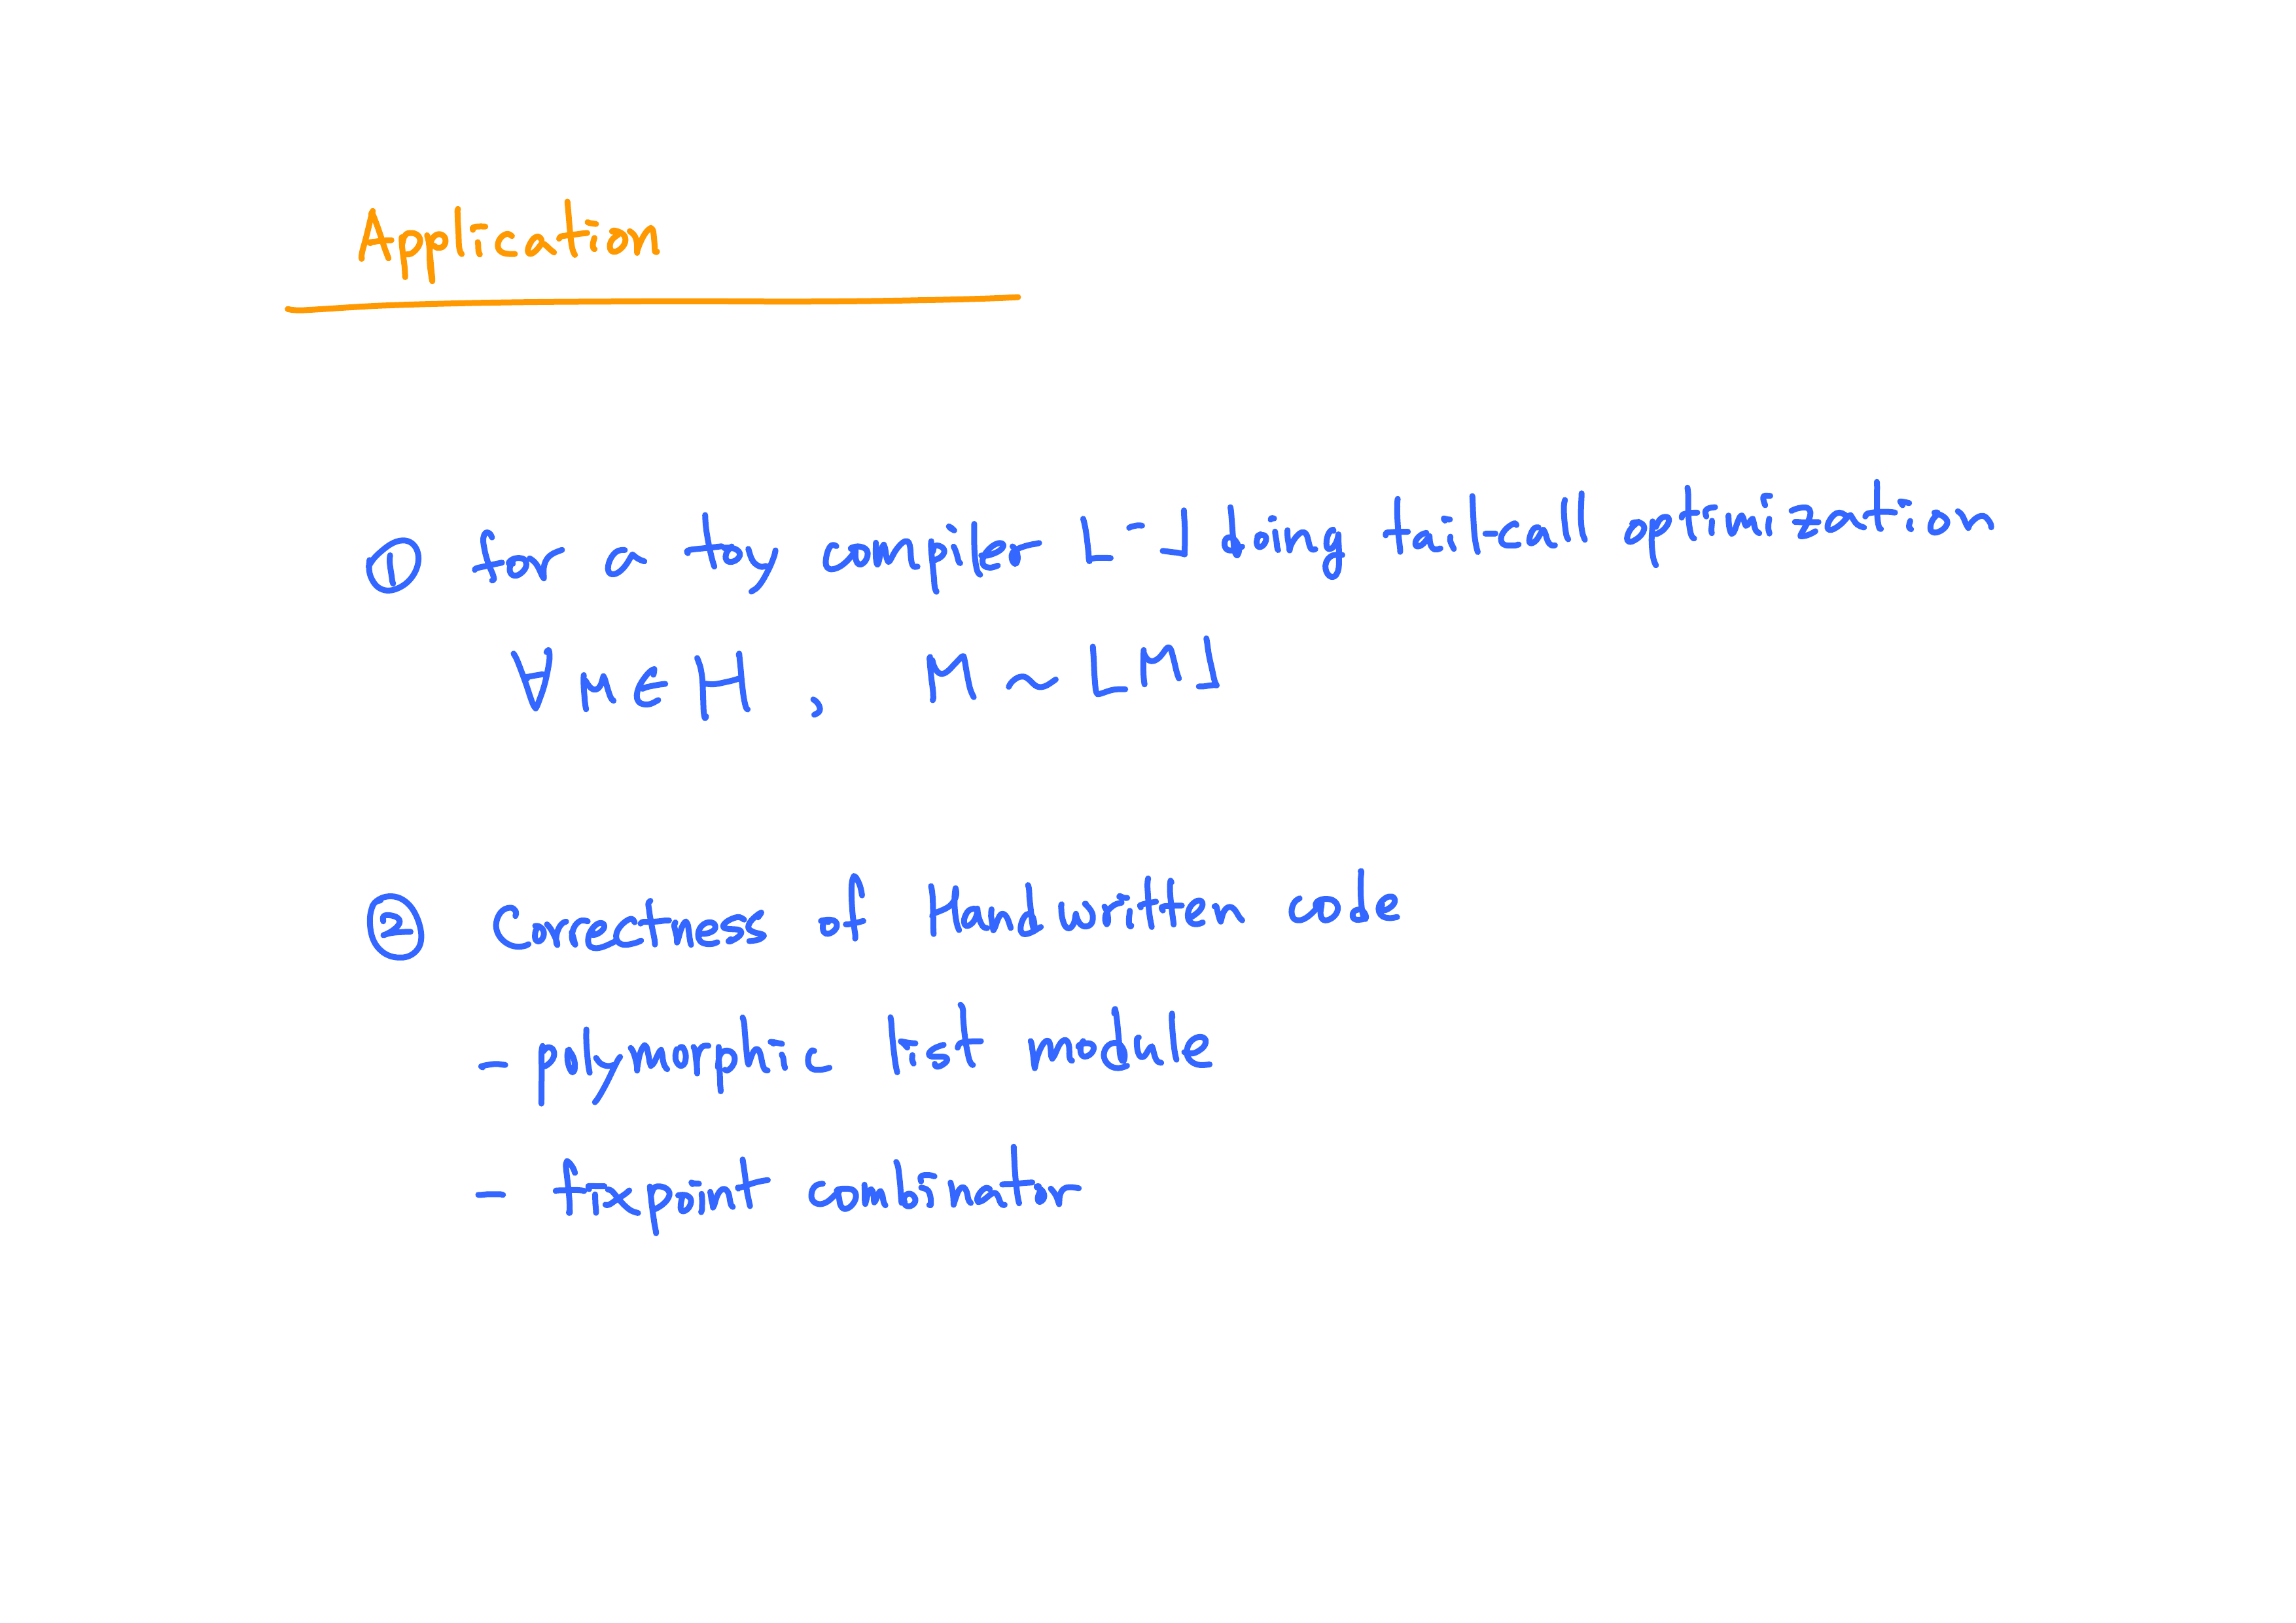 Application
① for a toy compiler ⌊-⌋ doing tail-call optimization
∀ M ∈ H , M ~ ⌊M⌋
② Correctness of Handwritten code
- polymorphic list module
- fixpoint combinator